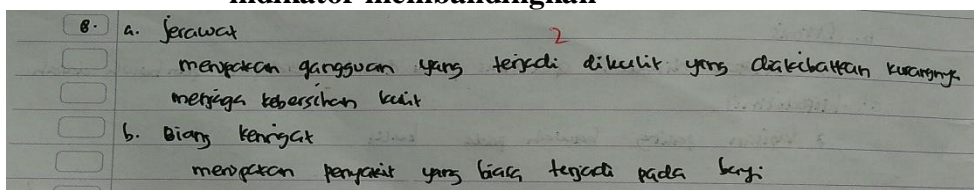 indikator membandingkan
8. a. Jerawat
2
merupakan gangguan yang terjadi dikulit yang diakibatkan kurangnya
menjaga kebersihan kulit
b. Biang keringat
merupakan penyakit yang biasa terjadi pada bayi